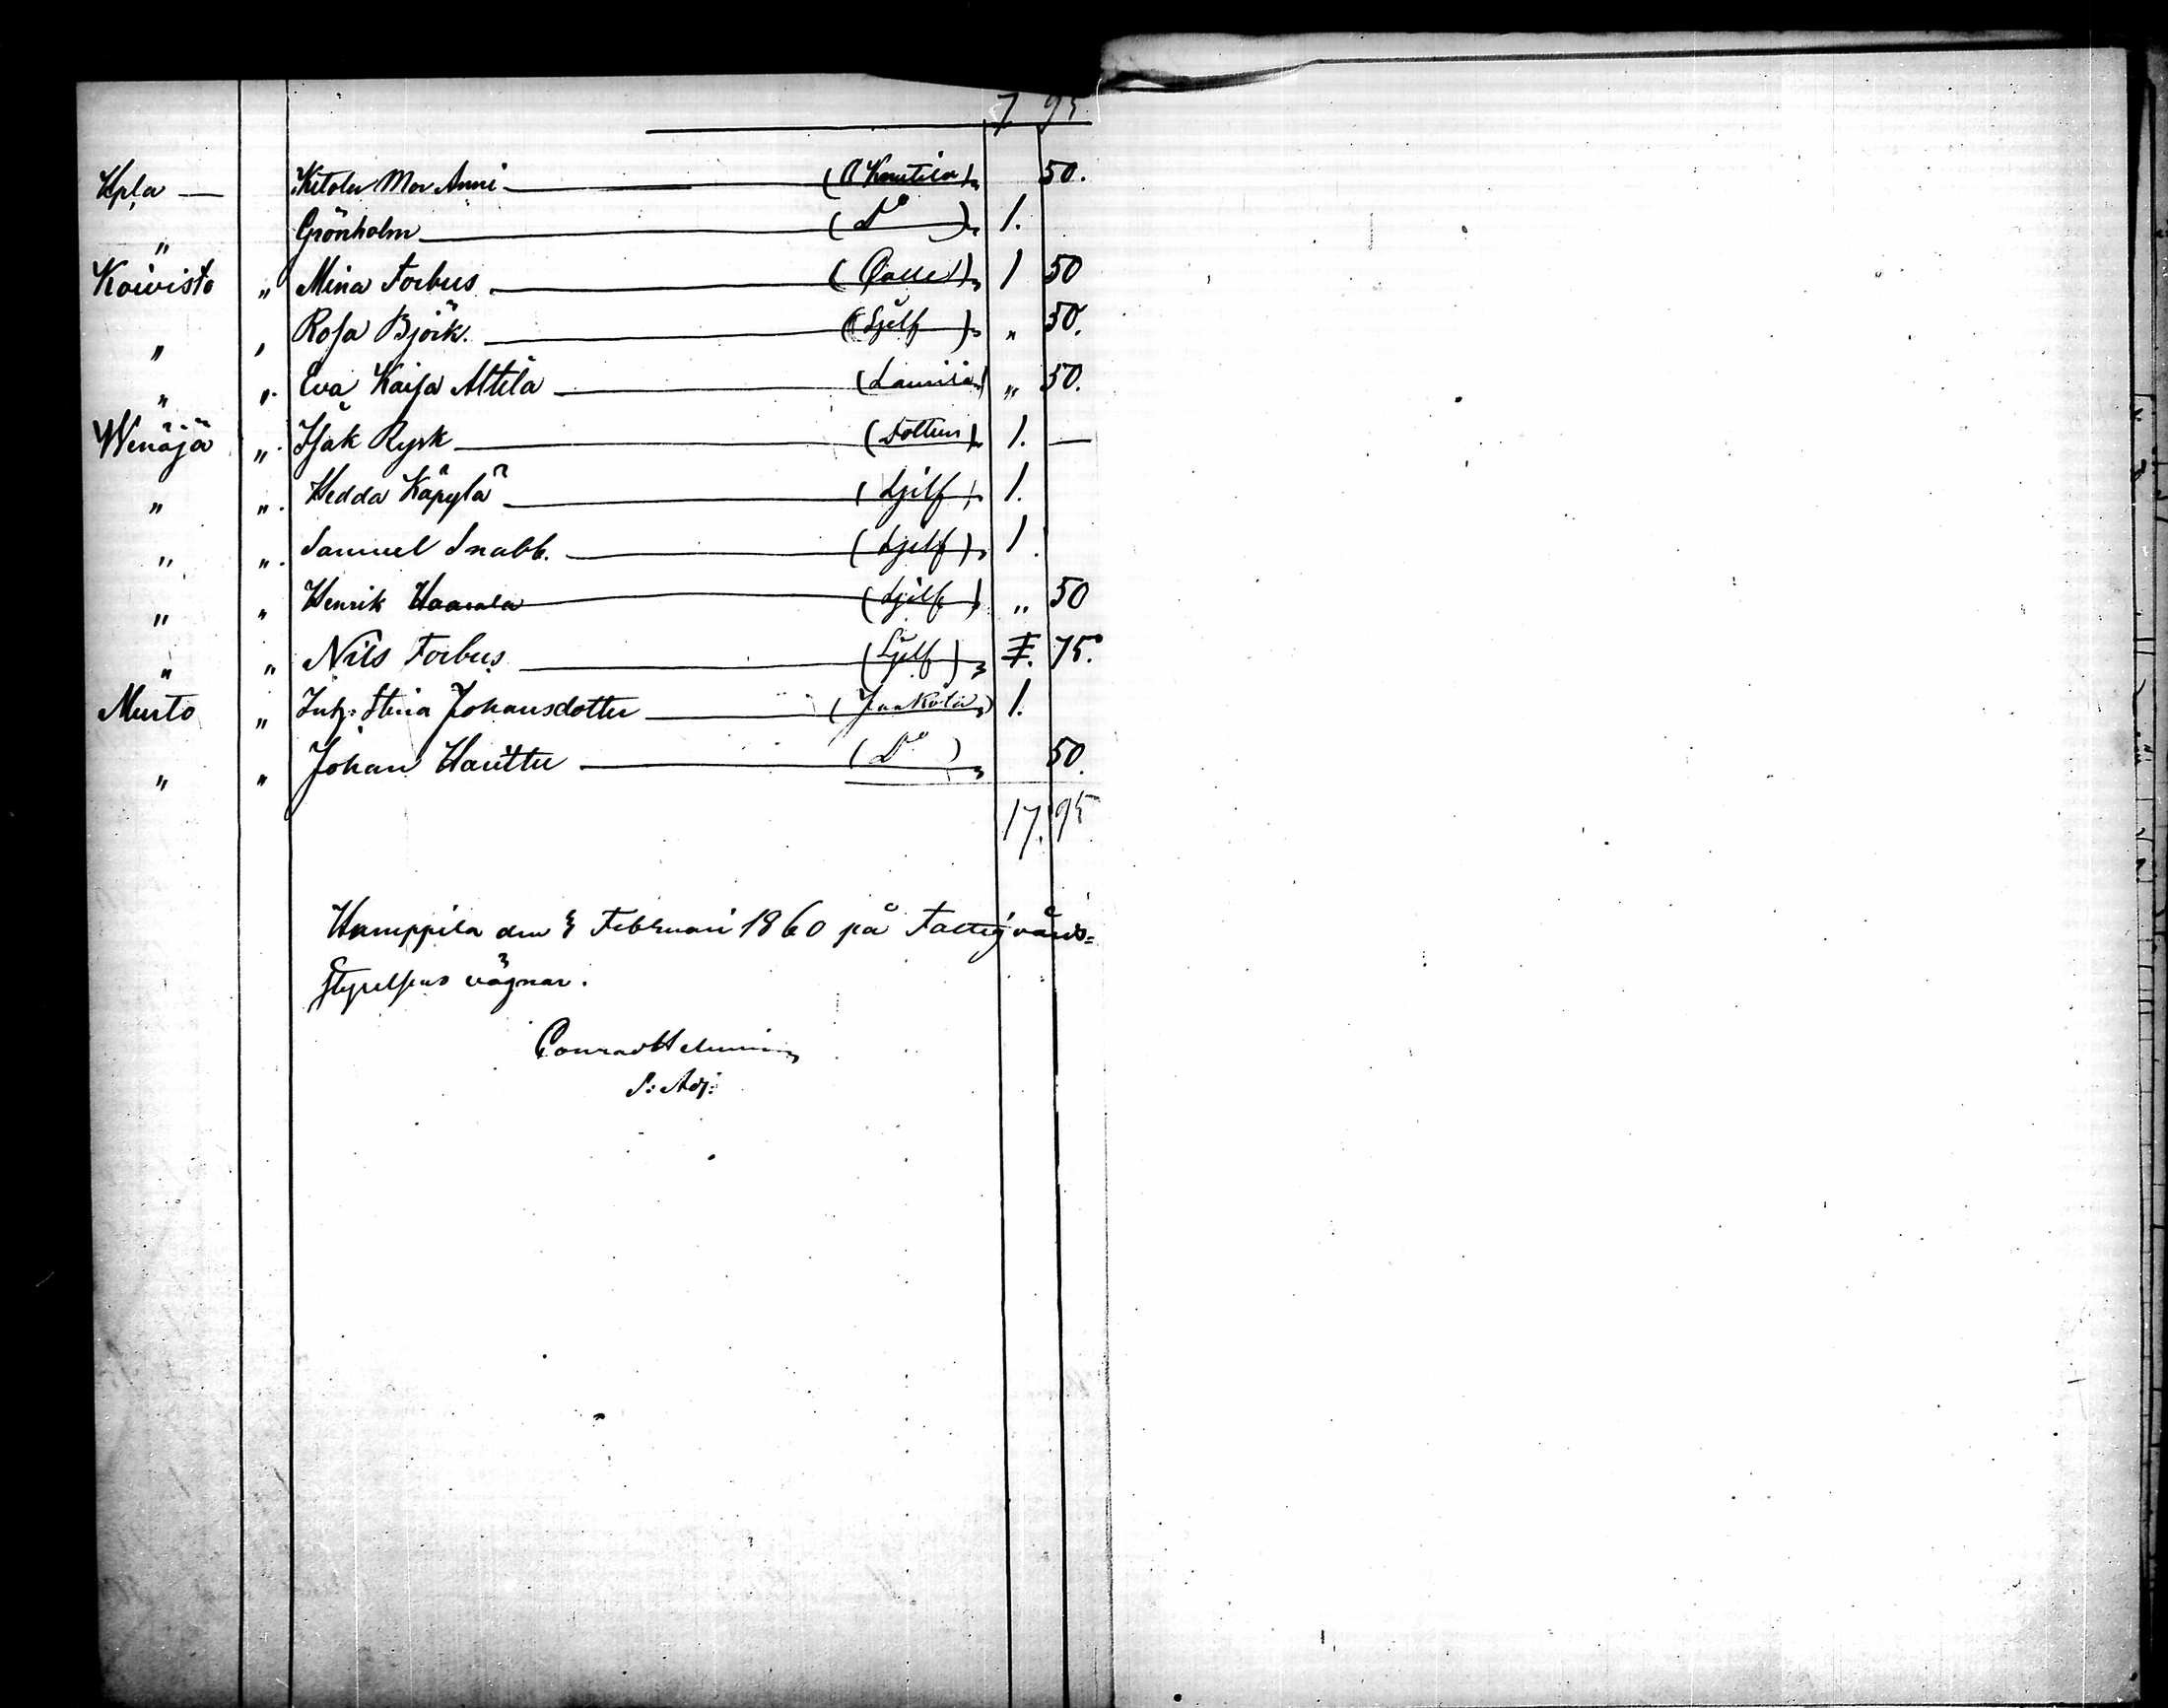 7 95
Hpla — Kitola Mor Anni (A Knutila) 50.
" Grönholm (Do) 1.
Koivisto " Mina Forbus (Qvalle) 1 50
" " Rosa Björk. (Sjelf) " 50.
" " Eva Kaisa Attila (Laurila) " 50.
Wenäjä " Isak Rysk (Dottern) 1. —
" " Hedda Käpylä (Sjelf) 1.
" " Samuel Snabb. (Sjelf) 1.
" " Henrik (Sjelf) " 50
" " Nils Forbus (Sjelf) 75.
Murto " Inh: Stina Johansdotter (Jaakola) 1.
" " Johan Hanttu (Do) 50.
17. 95
Humppila den 3 Februari 1860 på Fattigvårds=
styrelsens vägnar.
Conrad
S: Adj: